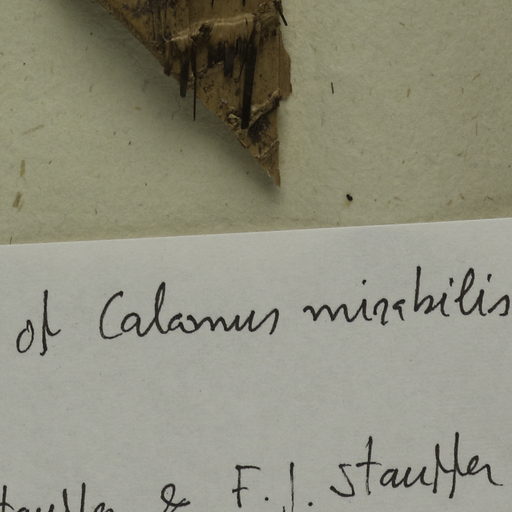 of Calamus mirabilis
& F.J. Stauffer